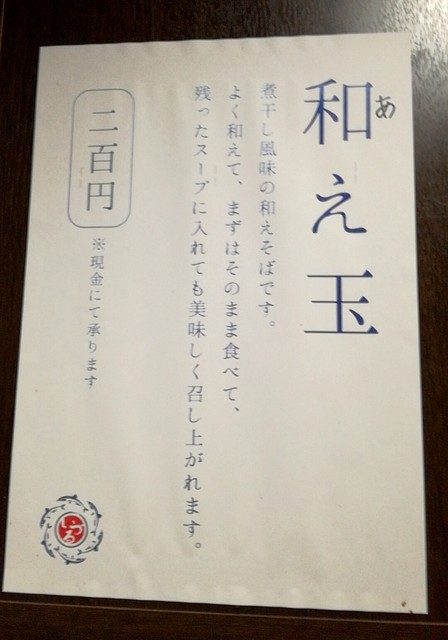 和え玉
あ
煮干し風味の和えそばです。
よく和えて、まずはそのまま食べて、
残ったスープに入れても美味しく召し上がれます。
二百円
※現金にて承ります